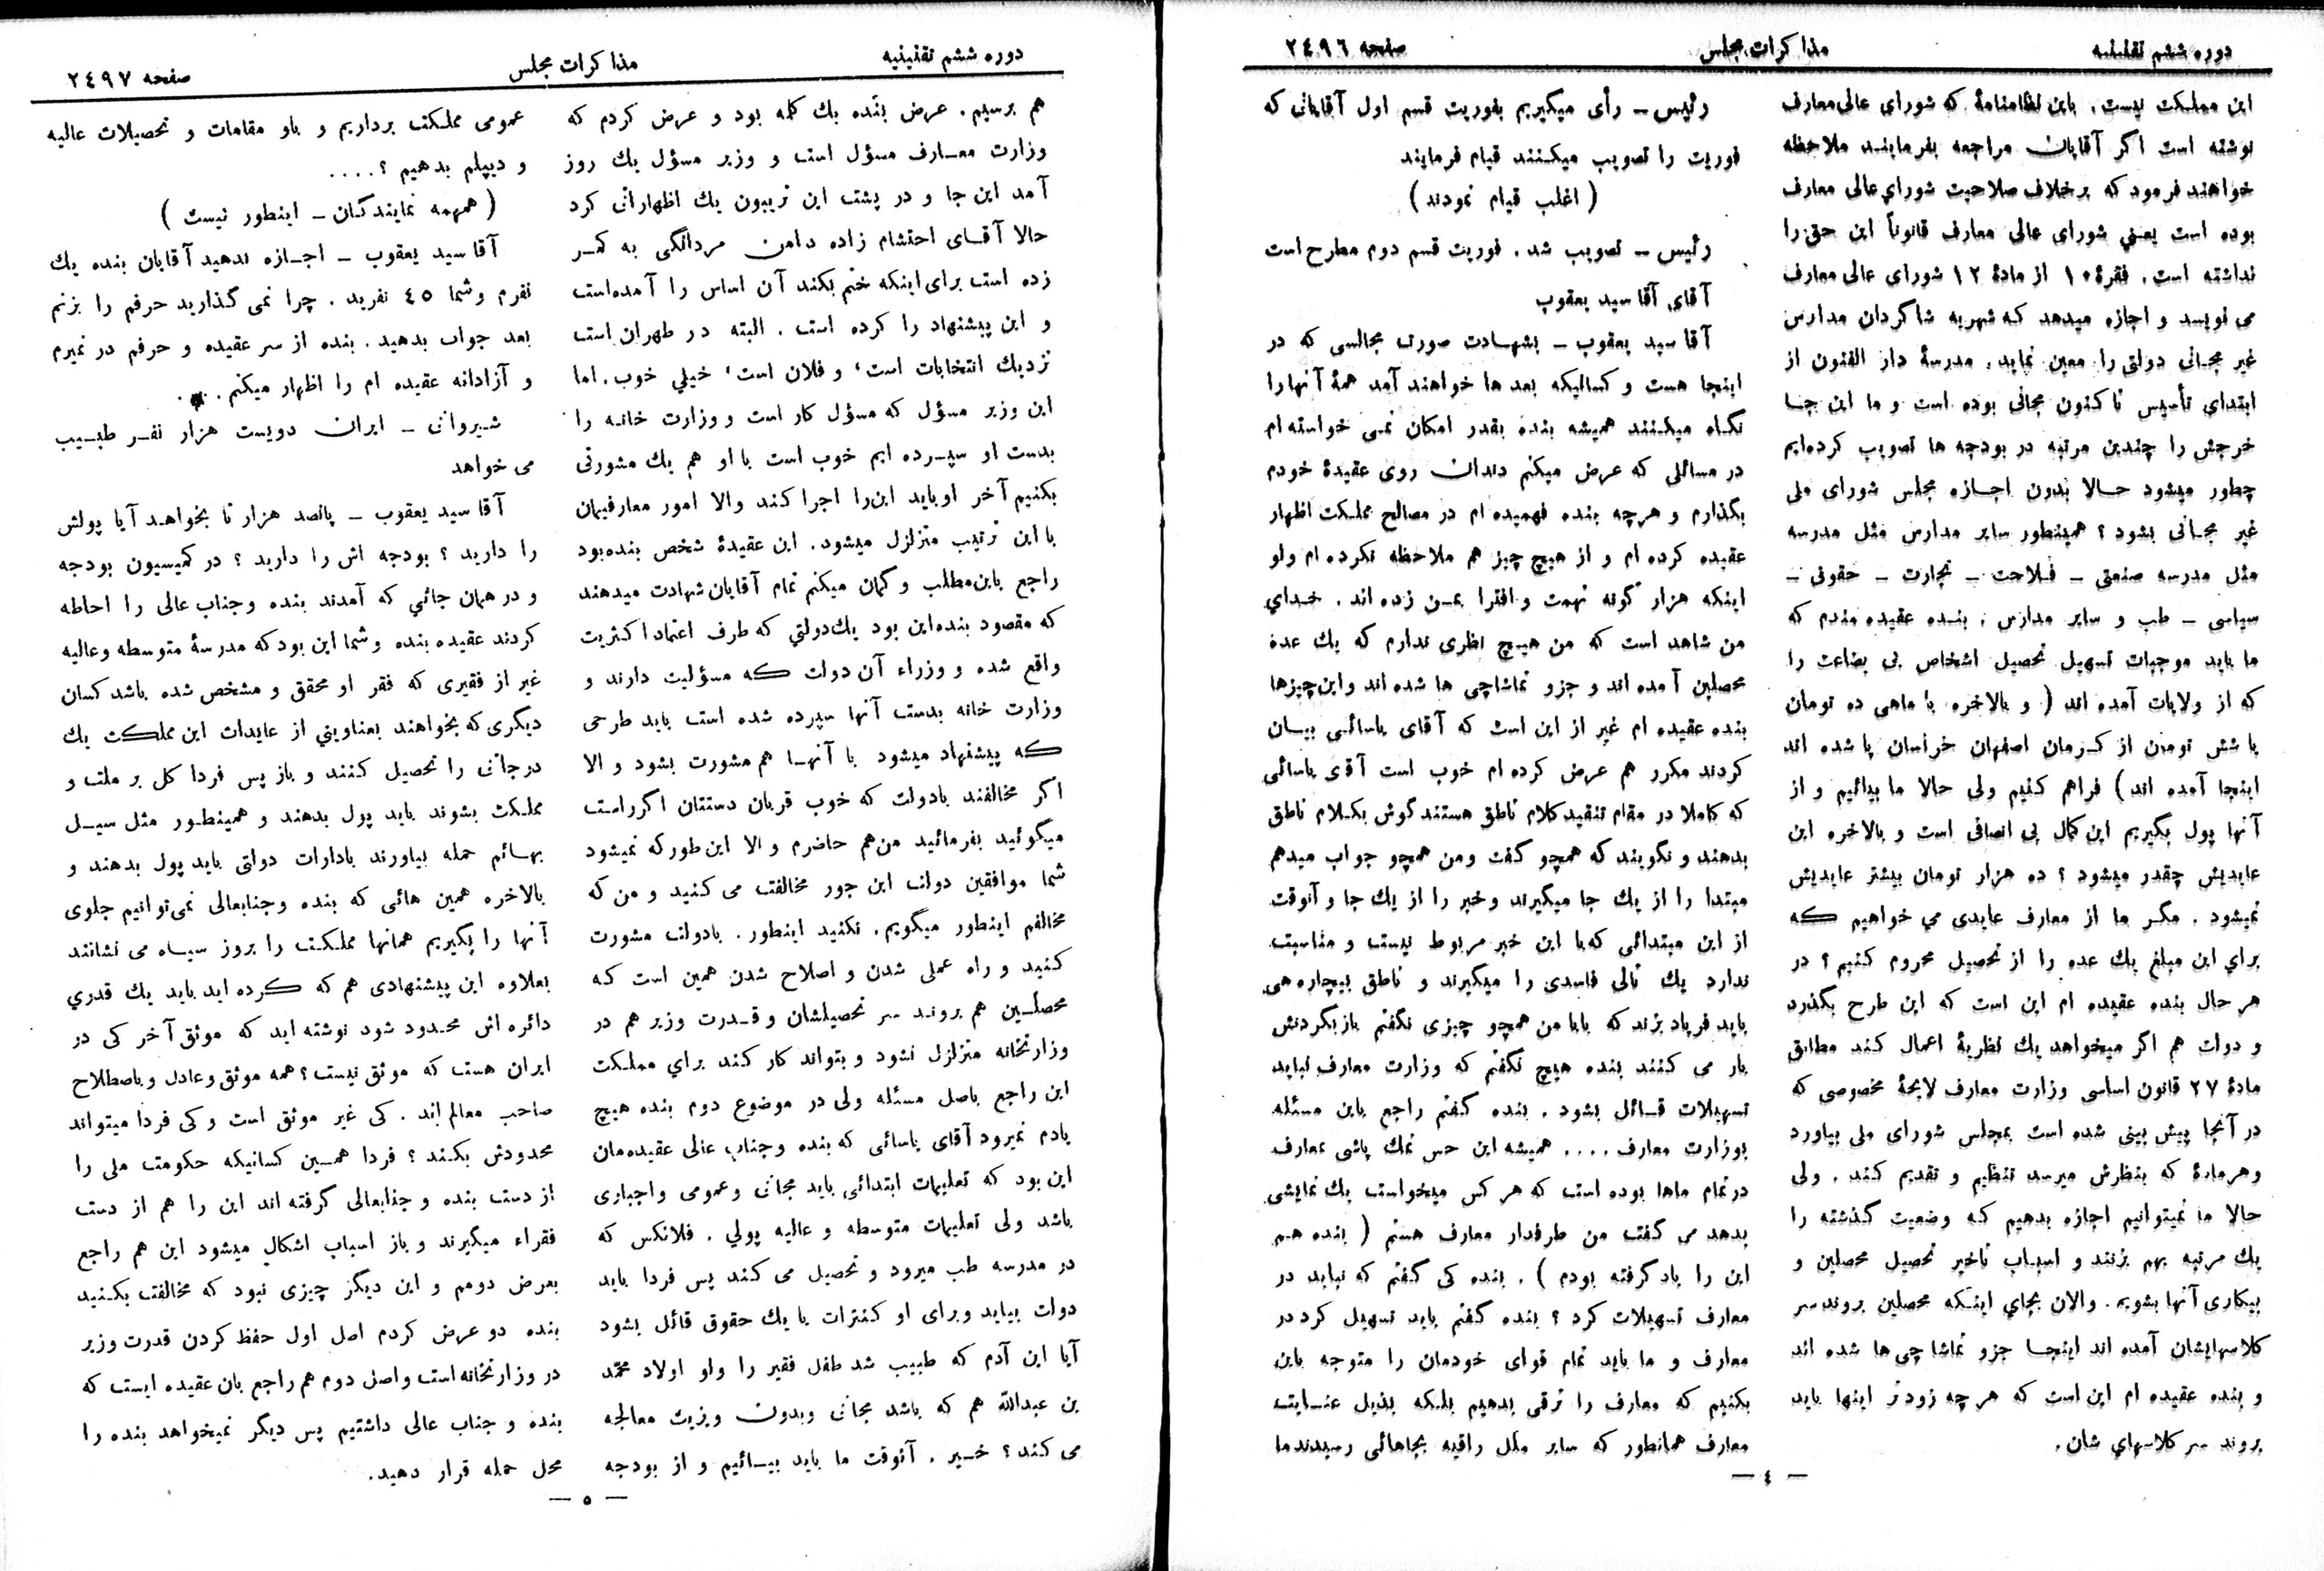 دوره ششم تقنینیه
مذاکرات مجلس
صفحه ٢٤٩٦
این مملکت نیست. باین نظامنامهٔ که شورای عالی معارف
نوشته است اگر آقایان مراجعه بفرمایند ملاحظه
خواهند فرمود که برخلاف صلاحیت شورای عالی معارف
بوده است یعنی شورای عالی معارف قانوناً این حق را
نداشته است. فقرهٔ ١٠ از مادهٔ ١٢ شورای عالی معارف
می نویسد و اجازه میدهد که شهریه شاگردان مدارس
غیر مجانی دولتی را معین نماید. مدرسهٔ دار الفنون از
ابتدای تأسیس تا کنون مجانی بوده است و ما این جا
خرجش را چندین مرتبه در بودجه ها تصویب کرده‌ایم
چطور میشود حالا بدون اجازه مجلس شورای ملی
غیر مجانی بشود ؟ همینطور سایر مدارس مثل مدرسه
مثل مدرسه صنعتی ـ فلاحت ـ تجارت ـ حقوقی ـ
سیاسی ـ طب و سایر مدارس . بنده عقیده مندم که
ما باید موجبات تسهیل تحصیل اشخاص بی بضاعت را
که از ولایات آمده اند ( و بالاخره با ماهی ده تومان
یا شش تومان از کرمان اصفهان خراسان پا شده اند
اینجا آمده اند ) فراهم کنیم ولی حالا ما بیائیم و از
آنها پول بگیریم این کمال بی انصافی است و بالاخره این
عایدیش چقدر میشود ؟ ده هزار تومان بیشتر عایدیش
نمیشود . مگر ما از معارف عایدی می خواهیم که
برای این مبلغ یك عده را از تحصیل محروم کنیم ؟ در
هر حال بنده عقیده ام این است که این طرح بگذرد
و دولت هم اگر میخواهد یك نظریهٔ اعمال کند مطابق
مادهٔ ٢٧ قانون اساسی وزارت معارف لایحهٔ مخصوصی که
در آنجا پیش بینی شده است بمجلس شورای ملی بیاورد
وهرمادهٔ که بنظرش میرسد تنظیم و تقدیم کند . ولی
حالا ما نمیتوانیم اجازه بدهیم که وضعیت گذشته را
یك مرتبه بهم بزنند و اسباب تاخیر تحصیل محصلین و
بیکاری آنها بشویم. والان بجای اینکه محصلین بروند سر
کلاسهایشان آمده اند اینجا جزو تماشاچی ها شده اند
و بنده عقیده ام این است که هر چه زودتر اینها باید
بروند سر کلاسهای شان.
رئیس ـ رأی میگیریم بفوریت قسم اول آقایانی که
فوریت را تصویب میکنند قیام فرمایند
( اغلب قیام نمودند )
رئیس ـ تصویب شد . فوریت قسم دوم مطرح است
آقای آقا سید یعقوب
آقا سید یعقوب ـ بشهادت صورت مجالسی که در
اینجا هست و کسانیکه بعد ها خواهند آمد همهٔ آنها را
نگاه میکنند همیشه بنده بقدر امکان نمی خواسته ام
در مسائلی که عرض میکنم دندان روی عقیدهٔ خودم
بگذارم و هرچه بنده فهمیده ام در مصالح مملکت اظهار
عقیده کرده ام و از هیچ چیز هم ملاحظه نکرده ام ولو
اینکه هزار گونه تهمت و افترا بمن زده اند . خدای
من شاهد است که من هیچ نظری ندارم که یك عده
محصلین آمده اند و جزو تماشاچی ها شده اند و این چیزها
بنده عقیده ام غیر از این است که آقای یاسائی بیان
کردند مکرر هم عرض کرده ام خوب است آقای یاسائی
که کاملا در مقام تنقید کلام ناطق هستند گوش بکلام ناطق
بدهند و نگویند که همچو گفت ومن همچو جواب میدهم
مبتدا را از یك جا میگیرند وخبر را از یك جا و آنوقت
از این مبتدائی که با این خبر مربوط نیست و مناسبت
ندارد یك تالی فاسدی را میگیرند و ناطق بیچاره هی
باید فریاد بزند که بابا من همچو چیزی نگفتم باز بگردنش
بار می کنند بنده هیچ نگفتم که وزارت معارف نباید
تسهیلات قائل بشود . بنده گفتم راجع باین مسئله
بوزارت معارف .... همیشه این حس نمك پاشی بمعارف
در تمام ماها بوده است که هر کس میخواست یك نمایشی
بدهد می گفت من طرفدار معارف هستم ( بنده هم
این را یاد گرفته بودم ) . بنده کی گفتم که نباید در
معارف تسهیلات کرد ؟ بنده گفتم باید تسهیل کرد در
معارف و ما باید تمام قوای خودمان را متوجه باین
بکنیم که معارف را ترقی بدهیم بلکه بذیل عنایت
معارف همانطور که سایر ملل راقیه بجاهائی رسیدند ما
— ٤ —
دوره ششم تقنینیه
مذاکرات مجلس
صفحه ٢٤٩٧
هم برسیم . عرض بنده یك کلمه بود و عرض کردم که
وزارت معارف مسؤل است و وزیر مسؤل یك روز
آمد این جا و در پشت این تریبون یك اظهاراتی کرد
حالا آقای احتشام زاده دامن مردانگی به کمر
زده است برای اینکه ختم بکند آن اساس را آمده‌است
و این پیشنهاد را کرده است . البته در طهران است
نزدیك انتخابات است ، و فلان است ، خیلی خوب . اما
این وزیر مسؤل که مسؤل کار است و وزارت خانه را
بدست او سپرده ایم خوب است با او هم یك مشورتی
بکنیم آخر او باید این‌را اجرا کند والا امور معارفیمان
با این ترتیب متزلزل میشود. این عقیدهٔ شخص بنده بود
راجع باین مطلب و گمان میکنم تمام آقایان شهادت میدهند
که مقصود بنده این بود یك دولتی که طرف اعتماد اکثریت
واقع شده و وزراء آن دولت که مسؤلیت دارند و
وزارت خانه بدست آنها سپرده شده است باید طرحی
که پیشنهاد میشود با آنها هم مشورت بشود و الا
اگر مخالفند بادولت که خوب قربان دستتان اگر راست
میگوئید بفرمائید من هم حاضرم و الا این طور که نمیشود
شما موافقین دولت این جور مخالفت می کنید و من که
مخالفم اینطور میگویم . نکنید اینطور . بادولت مشورت
کنید و راه عملی شدن و اصلاح شدن همین است که
محصلین هم بروند سر تحصیلشان و قدرت وزیر هم در
وزارتخانه متزلزل نشود و بتواند کار کند برای مملکت
این راجع باصل مسئله ولی در موضوع دوم بنده هیچ
یادم نمیرود آقای یاسائی که بنده و جناب عالی عقیده‌مان
این بود که تعلیمات ابتدائی باید مجانی و عمومی و اجباری
باشد ولی تعلیمات متوسطه و عالیه پولی . فلانکس که
در مدرسه طب میرود و تحصیل می کند پس فردا باید
دولت بیاید و برای او کنترات با یك حقوق قائل بشود
آیا این آدم که طبیب شد طفل فقیر را ولو اولاد محمد
بن عبدالله هم که باشد مجانی وبدون ویزیت معالجه
می کند ؟ خیر . آنوقت ما باید بیائیم و از بودجه
عمومی مملکت برداریم و باو مقامات و تحصیلات عالیه
و دیپلم بدهیم ؟....
( همهمه نمایندگان ـ اینطور نیست )
آقا سید یعقوب ـ اجازه ندهید آقایان بنده یك
نفرم وشما ٤٥ نفرید . چرا نمی گذارید حرفم را بزنم
بعد جواب بدهید . بنده از سر عقیده و حرفم در نمیرم
و آزادانه عقیده ام را اظهار میکنم ...
شیروانی ـ ایران دویست هزار نفر طبیب
می خواهد
آقا سید یعقوب ـ پانصد هزار تا بخواهد آیا پولش
را دارید ؟ بودجه اش را دارید ؟ در کمیسیون بودجه
و در همان جائی که آمدند بنده وجناب عالی را احاطه
کردند عقیده بنده و شما این بود که مدرسهٔ متوسطه وعالیه
غیر از فقیری که فقر او محقق و مشخص شده باشد کسان
دیگری که بخواهند بعناوینی از عایدات این مملکت یك
درجاتی را تحصیل کنند و باز پس فردا کل بر ملت و
مملکت بشوند باید پول بدهند و همینطور مثل سیل
بهائم حمله بیاورند بادارات دولتی باید پول بدهند و
بالاخره همین هائی که بنده وجنابعالی نمی‌توانیم جلوی
آنها را بگیریم همانها مملکت را بروز سیاه می نشانند
بعلاوه این پیشنهادی هم که کرده اید باید یك قدری
دائره اش محدود شود نوشته اید که موثق آخر کی در
ایران هست که موثق نیست ؟ همه موثق وعادل و باصطلاح
صاحب معالم اند . کی غیر موثق است و کی فردا میتواند
محدودش بکند ؟ فردا همین کسانیکه حکومت ملی را
از دست بنده و جنابعالی گرفته اند این را هم از دست
فقراء میگیرند و باز اسباب اشکال میشود این هم راجع
بعرض دومم و این دیگر چیزی نبود که مخالفت بکنید
بنده دو عرض کردم اصل اول حفظ کردن قدرت وزیر
در وزارتخانه است و اصل دوم هم راجع بان عقیده ایست که
بنده و جناب عالی داشتیم پس دیگر نمیخواهد بنده را
محل حمله قرار دهید.
— ٥ —